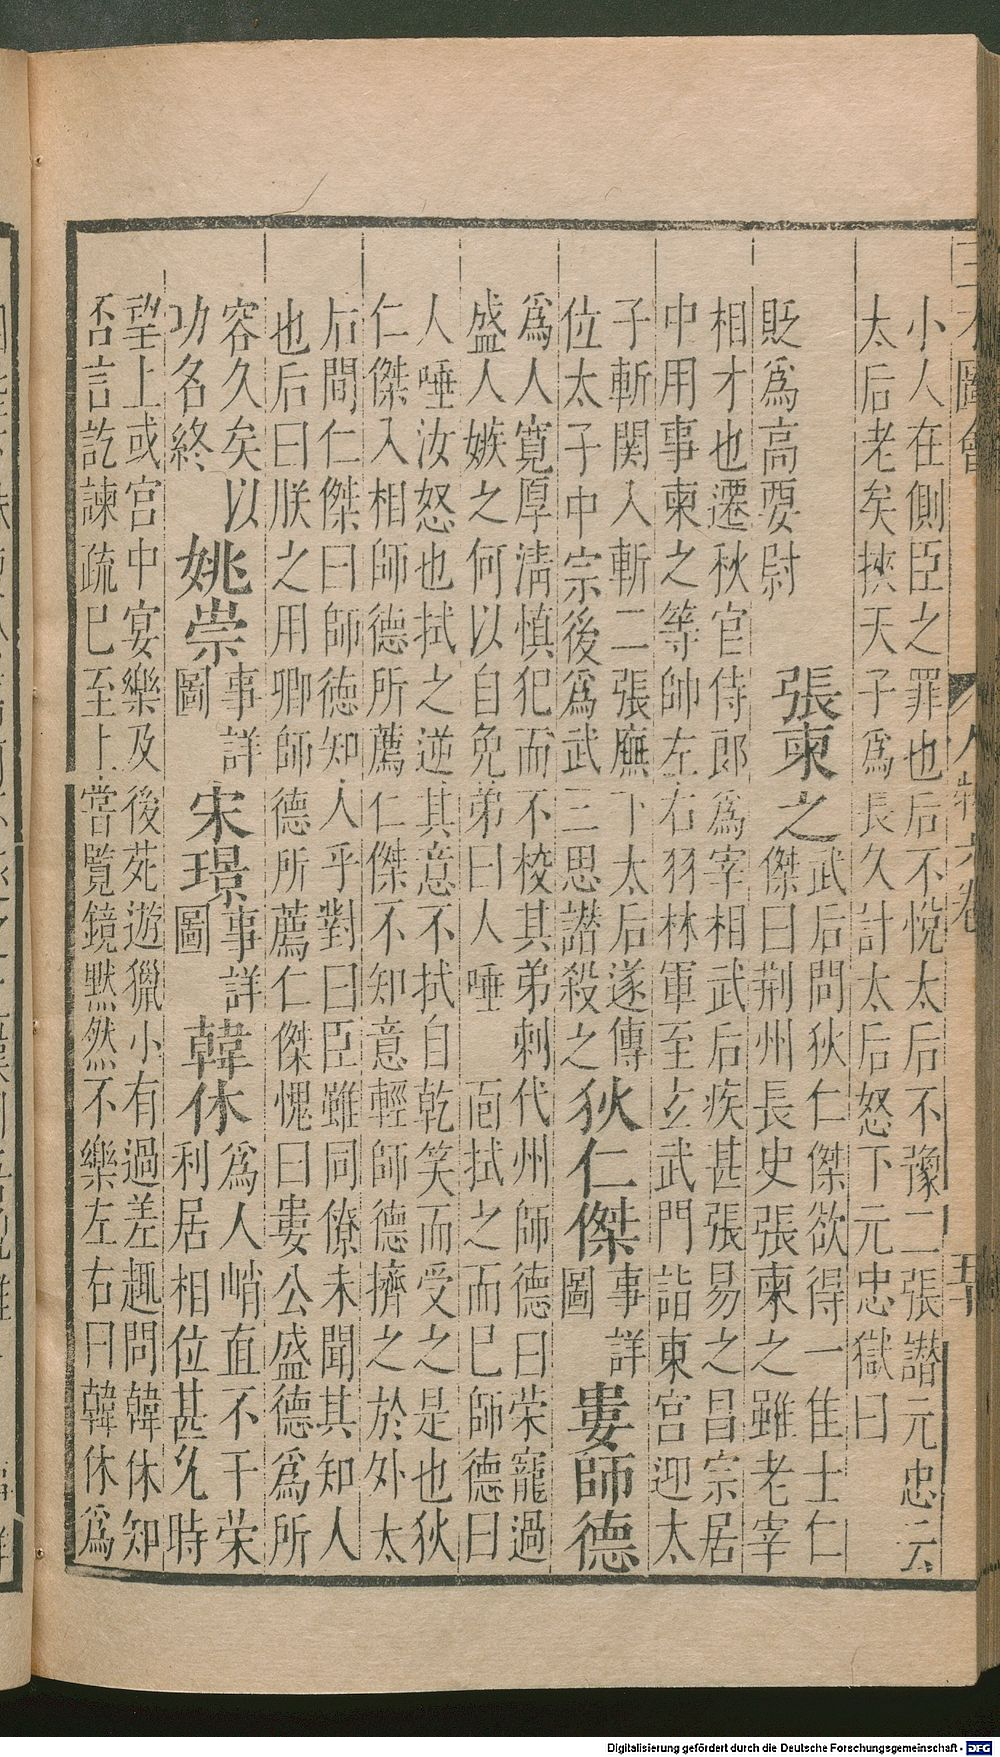 三才圖會
人物六卷
五十
小人在側臣之罪也后不悅太后不豫二張譖元忠云
太后老矣挾天子爲長久計太后怒下元忠獄曰
貶爲高要尉
張柬之
武后問狄仁傑欲得一隹士仁
傑曰荆州長史張柬之雖老宰
相才也遷秋官侍郎爲宰相武后疾甚張易之昌宗居
中用事柬之等帥左右羽林軍至玄武門詣東宮迎太
子斬関入斬二張廡下太后遂傳
位太子中宗後爲武三思譖殺之
狄仁傑
事詳
圖
婁師德
爲人寬厚淸慎犯而不校其弟刺代州師德曰荣寵過
盛人嫉之何以自免弟曰人唾靣拭之而已師德曰
人唾汝怒也拭之逆其意不拭自乾笑而受之是也狄
仁傑入相師德所薦仁傑不知意輕師德擠之於外太
后問仁傑曰師德知人乎對曰臣雖同僚未聞其知人
也后曰朕之用卿師德所薦仁傑愧曰婁公盛德爲所
容久矣以
功名終
姚崇
事詳
圖
宋璟
事詳
圖
韓休
爲人峭直不干荣
利居相位甚允時
望上或宮中宴樂及後苑遊獵小有過差趣問韓休知
否言訖諫疏已至上嘗覽鏡默然不樂左右曰韓休爲
Digitalisierung gefördert durch die Deutsche Forschungsgemeinschaft - DFG